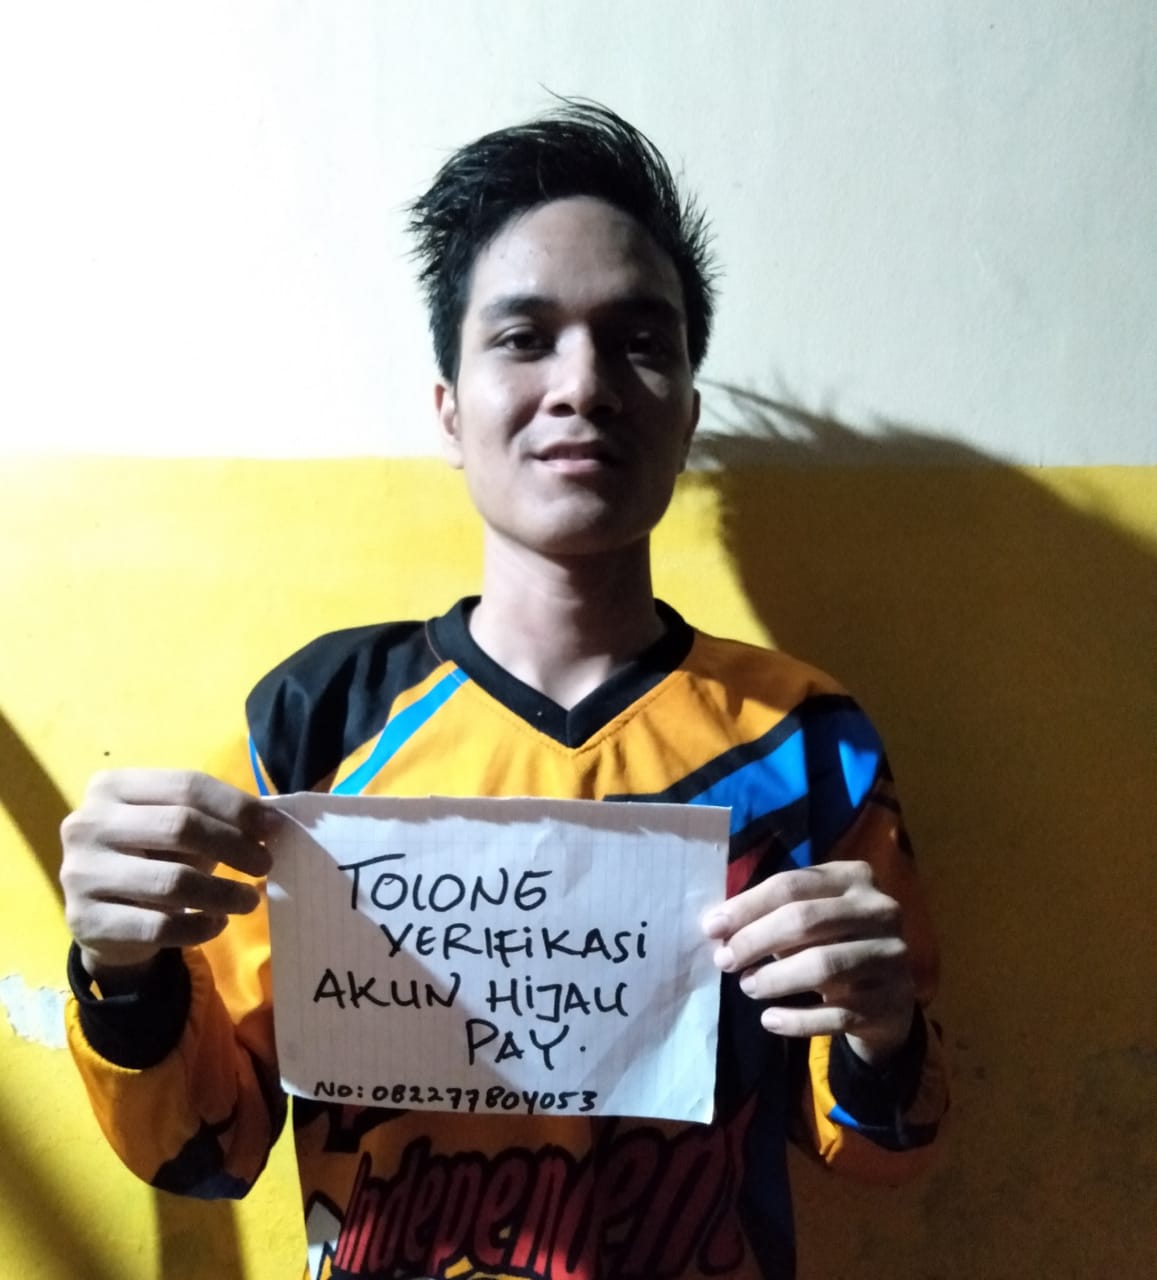 TOLONG
VERIFIKASI
AKUN HIJAU
PAY.
NO: 082277804053
Independent